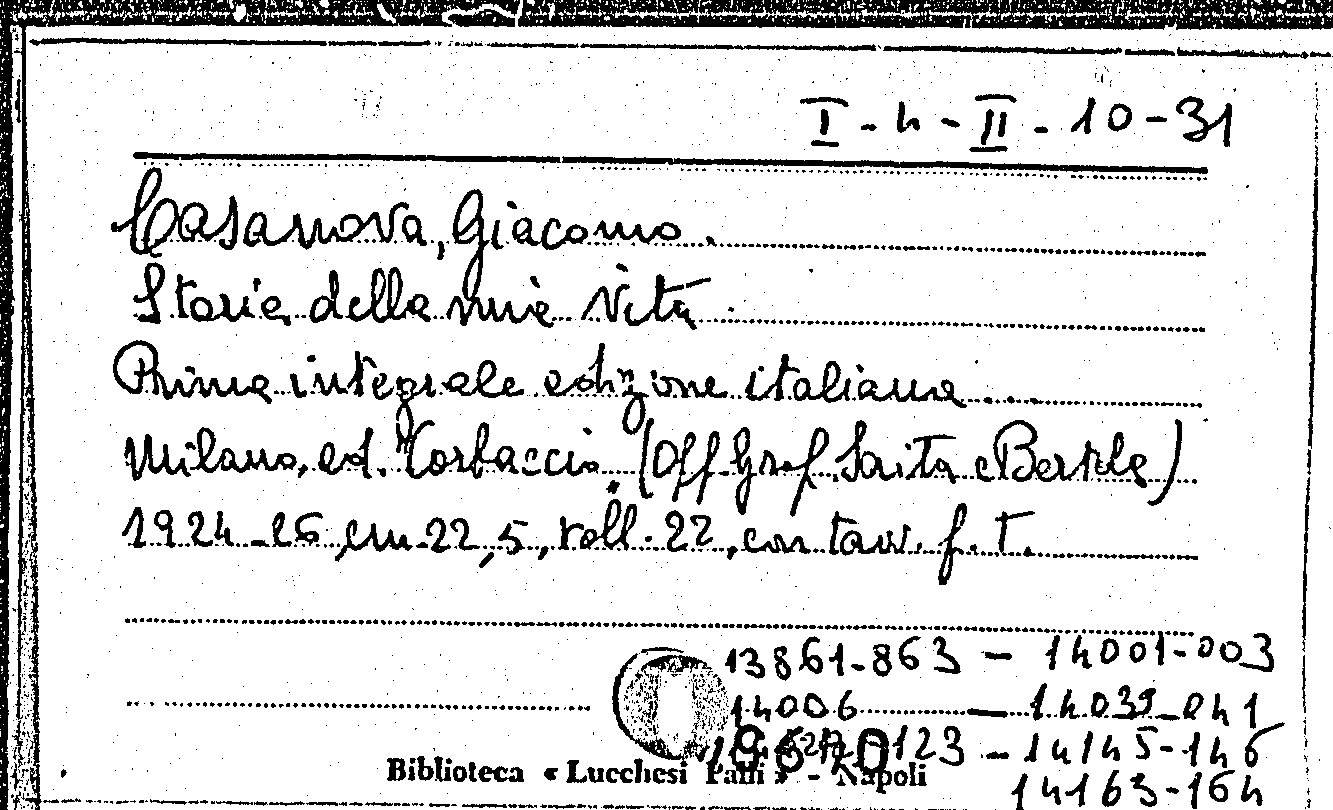 I - 4 - II - 10-31
Casanova, Giacomo.
Storia della mia vita.
Prima integrale edizione italiana...
Milano, ed. Corbaccio. (Off. Graf. Saita e Bertola)
1924-26, cm. 22,5, voll. 22, con tavv. f. T.
13861-863 - 14001-003
14006 - 14039-041
123 - 14145-146
Biblioteca « Lucchesi Palli » - Napoli
14163-164